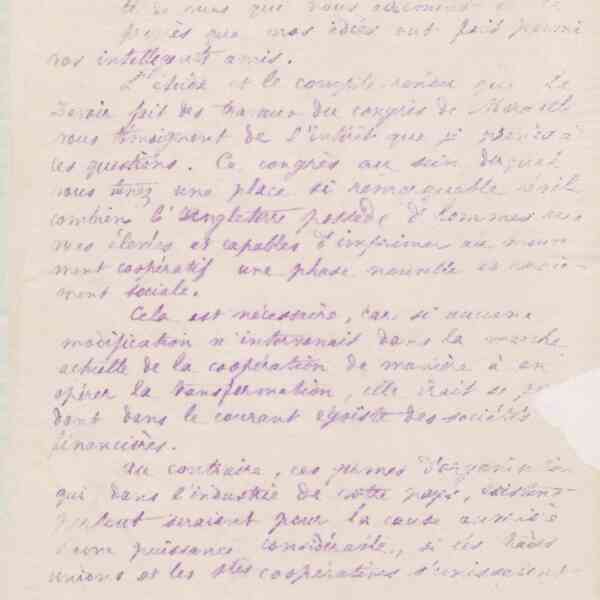 que vous
que mes idées ont fait parmi
vos intelligents amis.
L'étude et le compte-rendu que Le
Devoir fait des travaux du congrès de
vous témoignent de l'intérêt que je prends à
ces questions. Ce congrès au sein duquel
vous tenez une place si remarquable
combien l'Angleterre possède d'hommes aux
vues élevées et capables d'imprimer au mouve-
ment coopératif une phase nouvelle
ment sociale.
Cela est nécessaire, car si aucune
modification n'intervenait dans la marche
actuelle de la coopération de manière à en
opérer la transformation, elle irait se
dant dans le courant égoïste des sociétés
financières.
Au contraire, ces formes d'organisation
qui dans l'industrie de votre pays, existent
partout seraient pour la cause
d'une puissance considérable, si les trades
unions et les stés coopératives s'unissaient